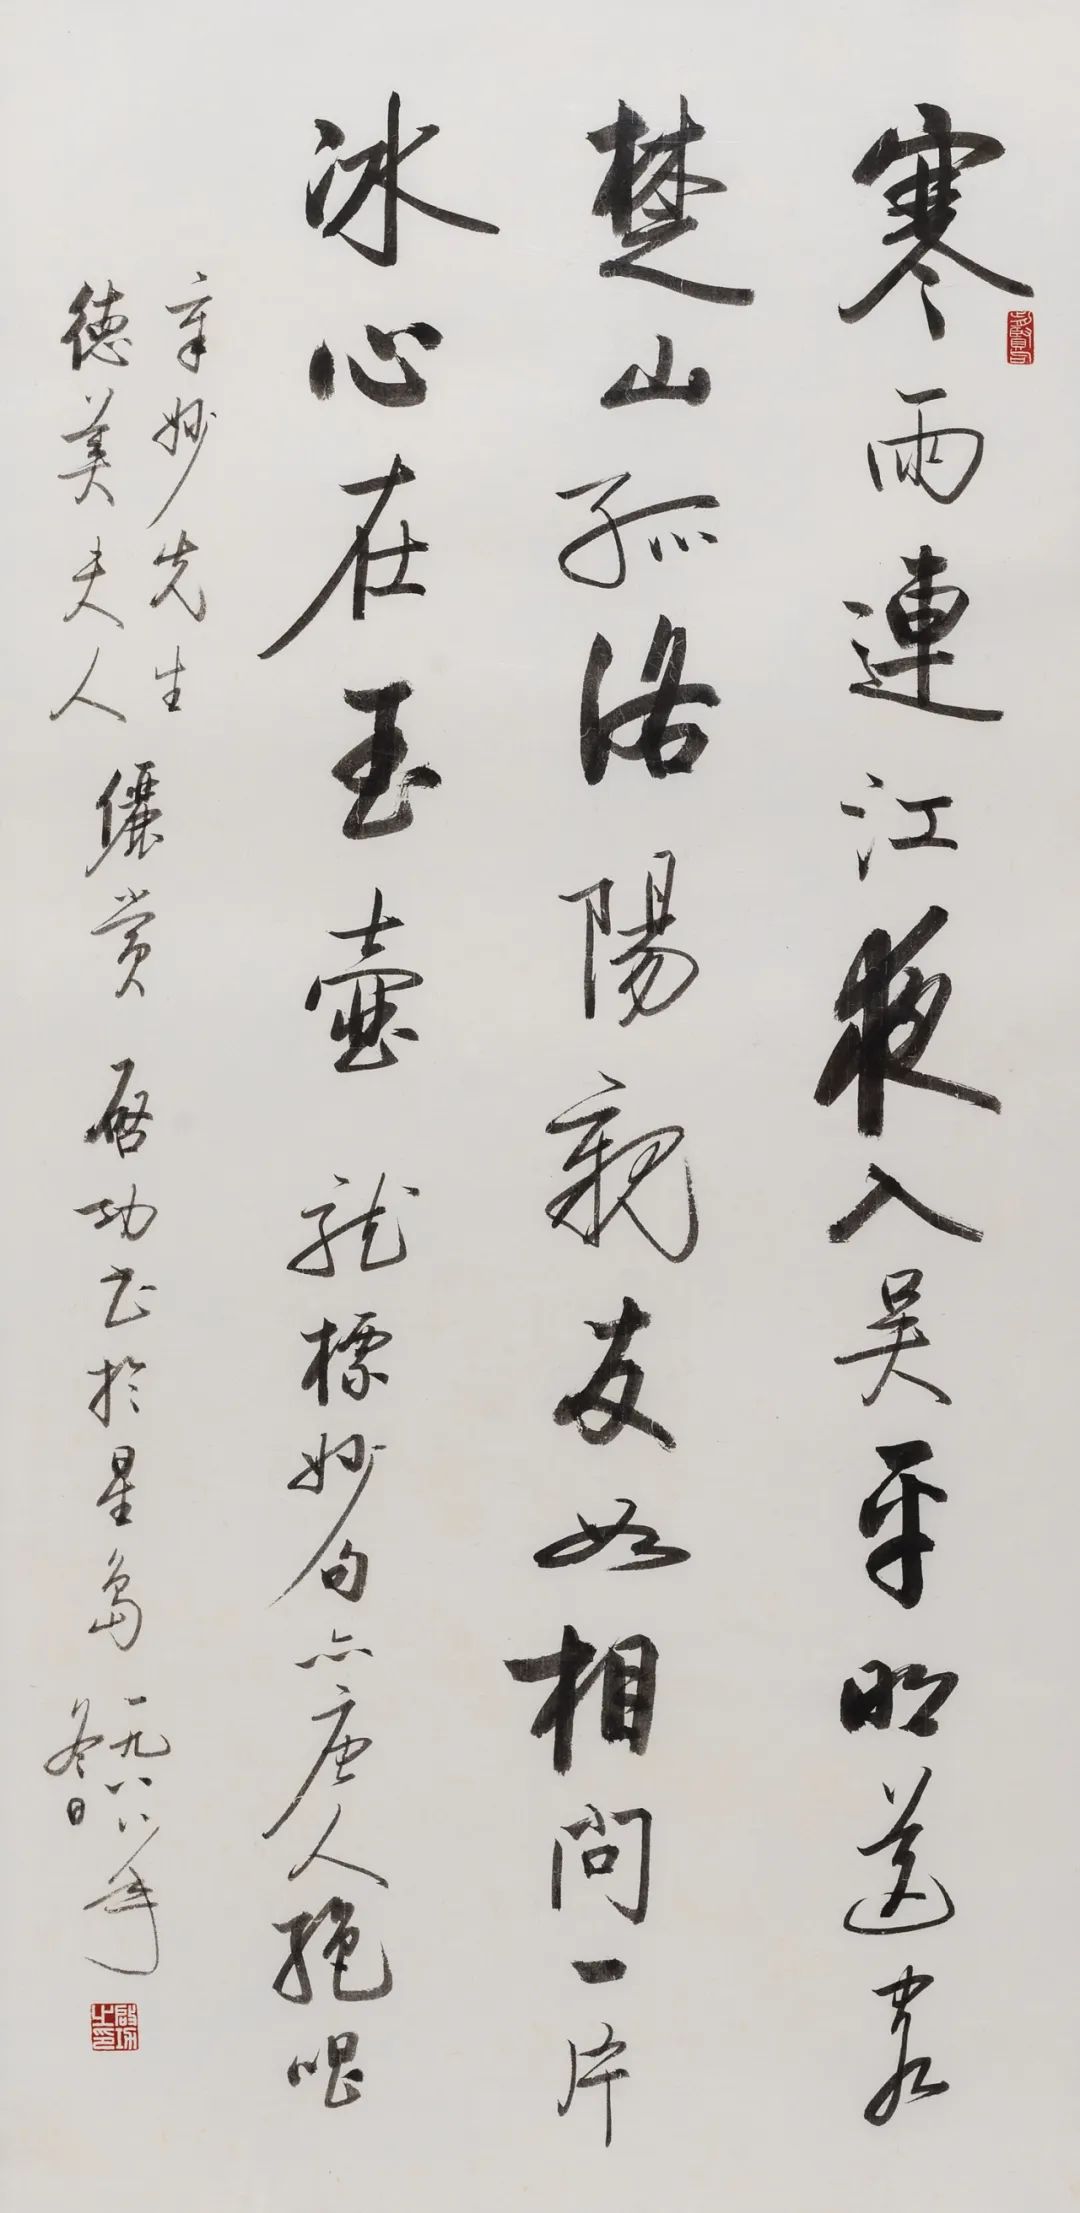 寒雨連江夜入吴平明送客
楚山孤洛陽親友如相問一片
冰心在玉壺 龍標妙句亦唐人絕唱
辛妙先生
德美夫人
儷賞 啟功書於星島 一九八八年
冬日
啟功之印